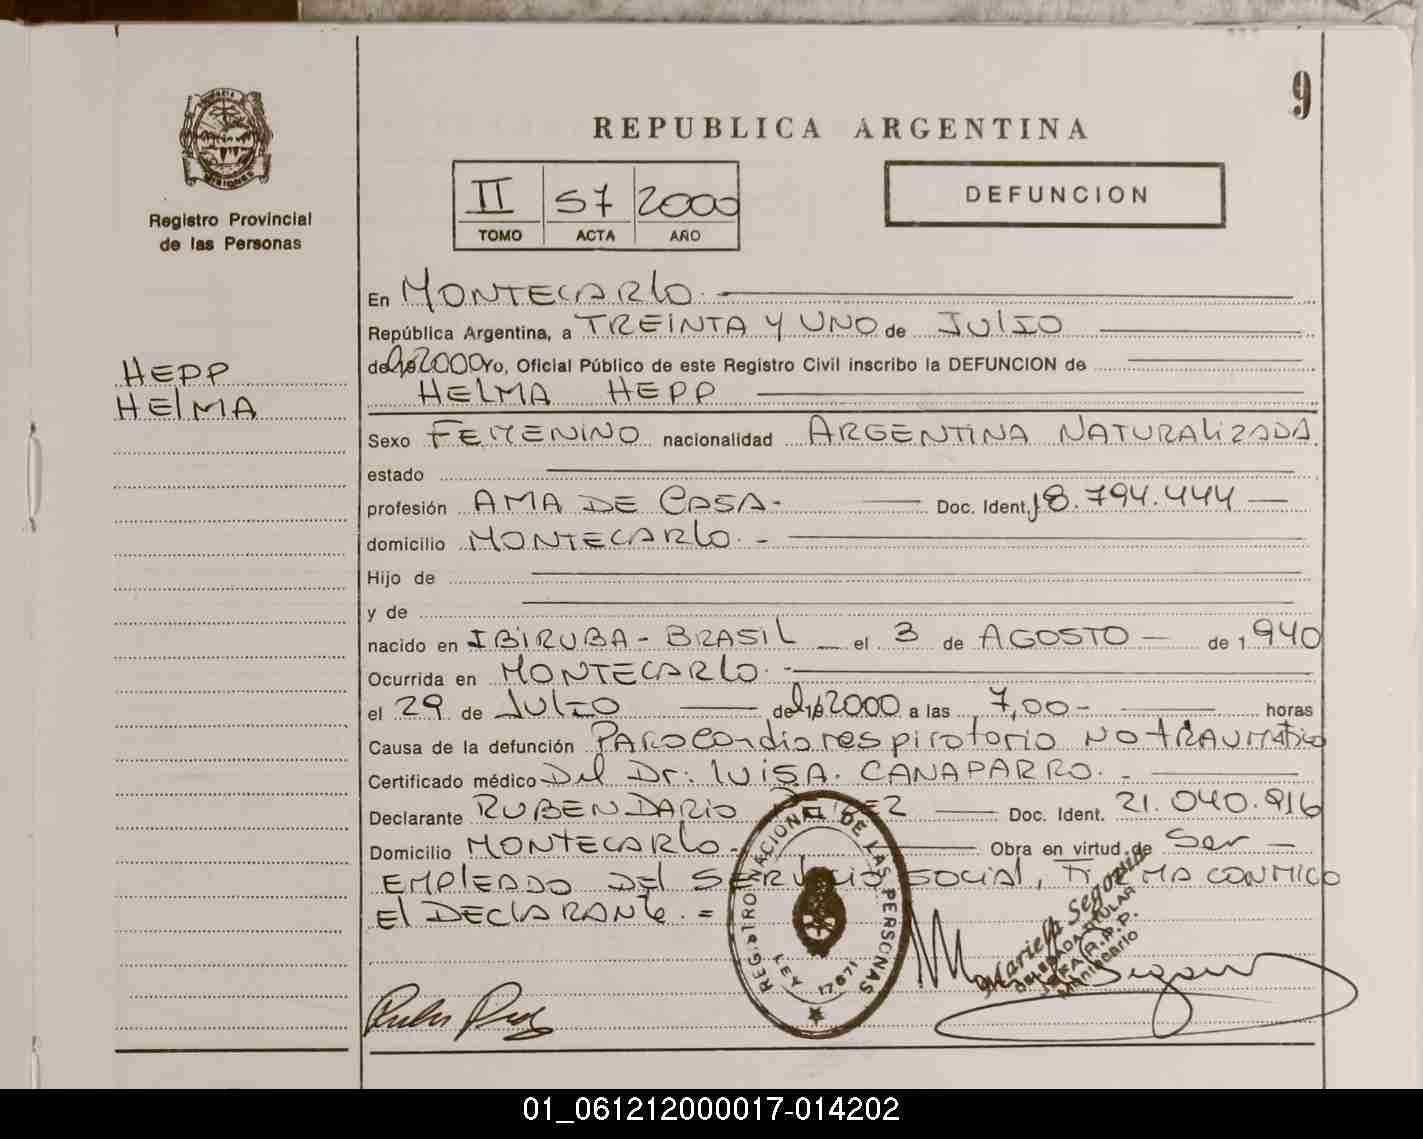 9
REPUBLICA ARGENTINA
II 57 2000
TOMO ACTA AÑO
DEFUNCION
PROVINCIA
MISIONES
Registro Provincial
de las Personas
HEPP
HELMA
En MONTECARLO.
República Argentina, a TREINTA Y UNO de JULIO
de 2000 Yo, Oficial Público de este Registro Civil inscribo la DEFUNCION de
HELMA HEPP
Sexo FEMENINO nacionalidad ARGENTINA NATURALIZADA
estado
profesión AMA DE CASA- Doc. Ident. 18.794.444
domicilio MONTECARLO. -
Hijo de
y de
nacido en IBIRUBA - BRASIL el 3 de AGOSTO de 1940
Ocurrida en MONTECARLO. -
el 29 de JULIO de 2000 a las 7,00- horas
Causa de la defunción PAROcardiorespiratorio NO TRAUMático
Certificado médico Del Dr: LUIS A. CANAPARRO. -
Declarante RUBEN DARIO Doc. Ident. 21.040.916
Domicilio MONTECARLO- Obra en virtud de Ser
EMPLEADO DEL SERVICIO SOCIAL, FIRMA CONMIGO
El DECLARANTE. =
REGISTRO NACIONAL DE LAS PERSONAS
LEY 17671
Mariela Segovia
DELEGADA TITULAR
JEFA R.P.P.
Montecarlo
01_061212000017-014202